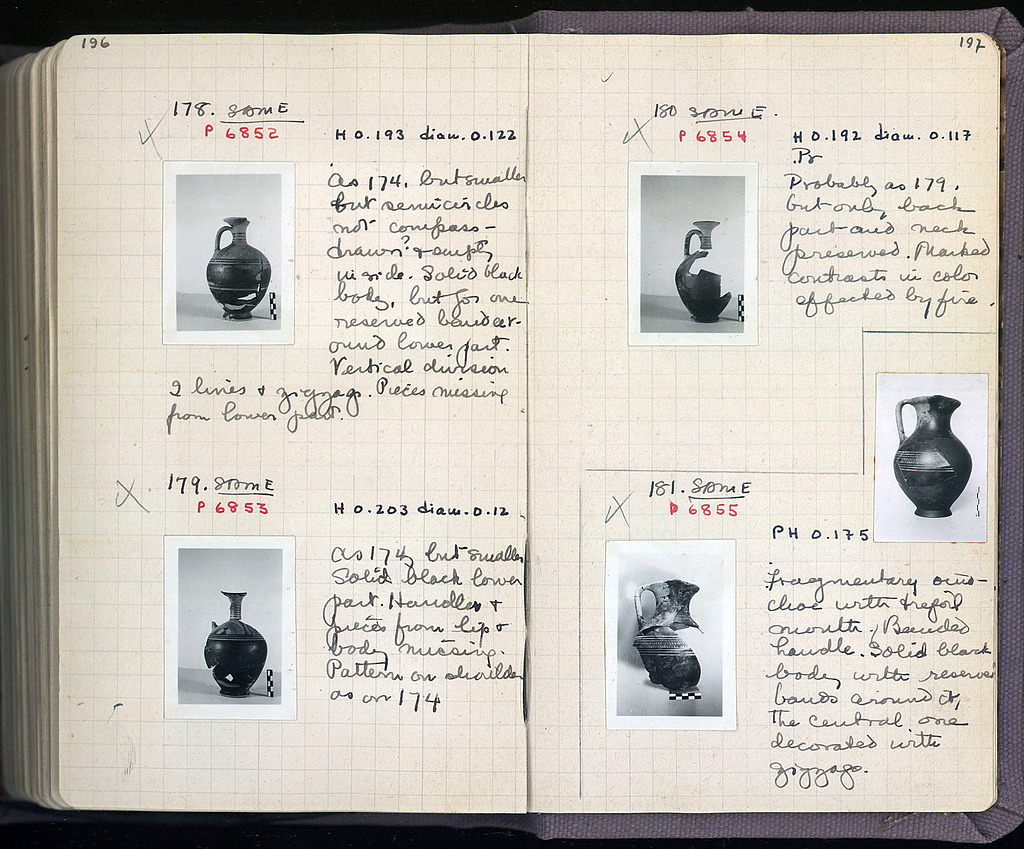 196
178. SAME
P 6852
H 0.193 diam. 0.122
As 174, but smaller
but semicircles
not compass-
drawn? & empty
inside. Solid black
body, but for one
reserved band ar-
ound lower part.
Vertical division
2 lines & zigzags. Pieces missing
from lower part.
179. SAME
P 6853
H 0.203 diam. 0.12
As 174, but smaller
Solid black lower
part. Handle &
pieces from lip &
body missing.
Pattern on shoulder
as on 174
197
180 SAME.
P 6854
H 0.192 diam. 0.117
Pr
Probably as 179,
but only back
part and neck
preserved. Marked
contrasts in color
effected by fire.
181. SAME
P 6855
PH 0.175
Fragmentary oino-
choe with trefoil
mouth. Banded
handle. Solid black
body with reserve
bands around it,
the central one
decorated with
zigzags.